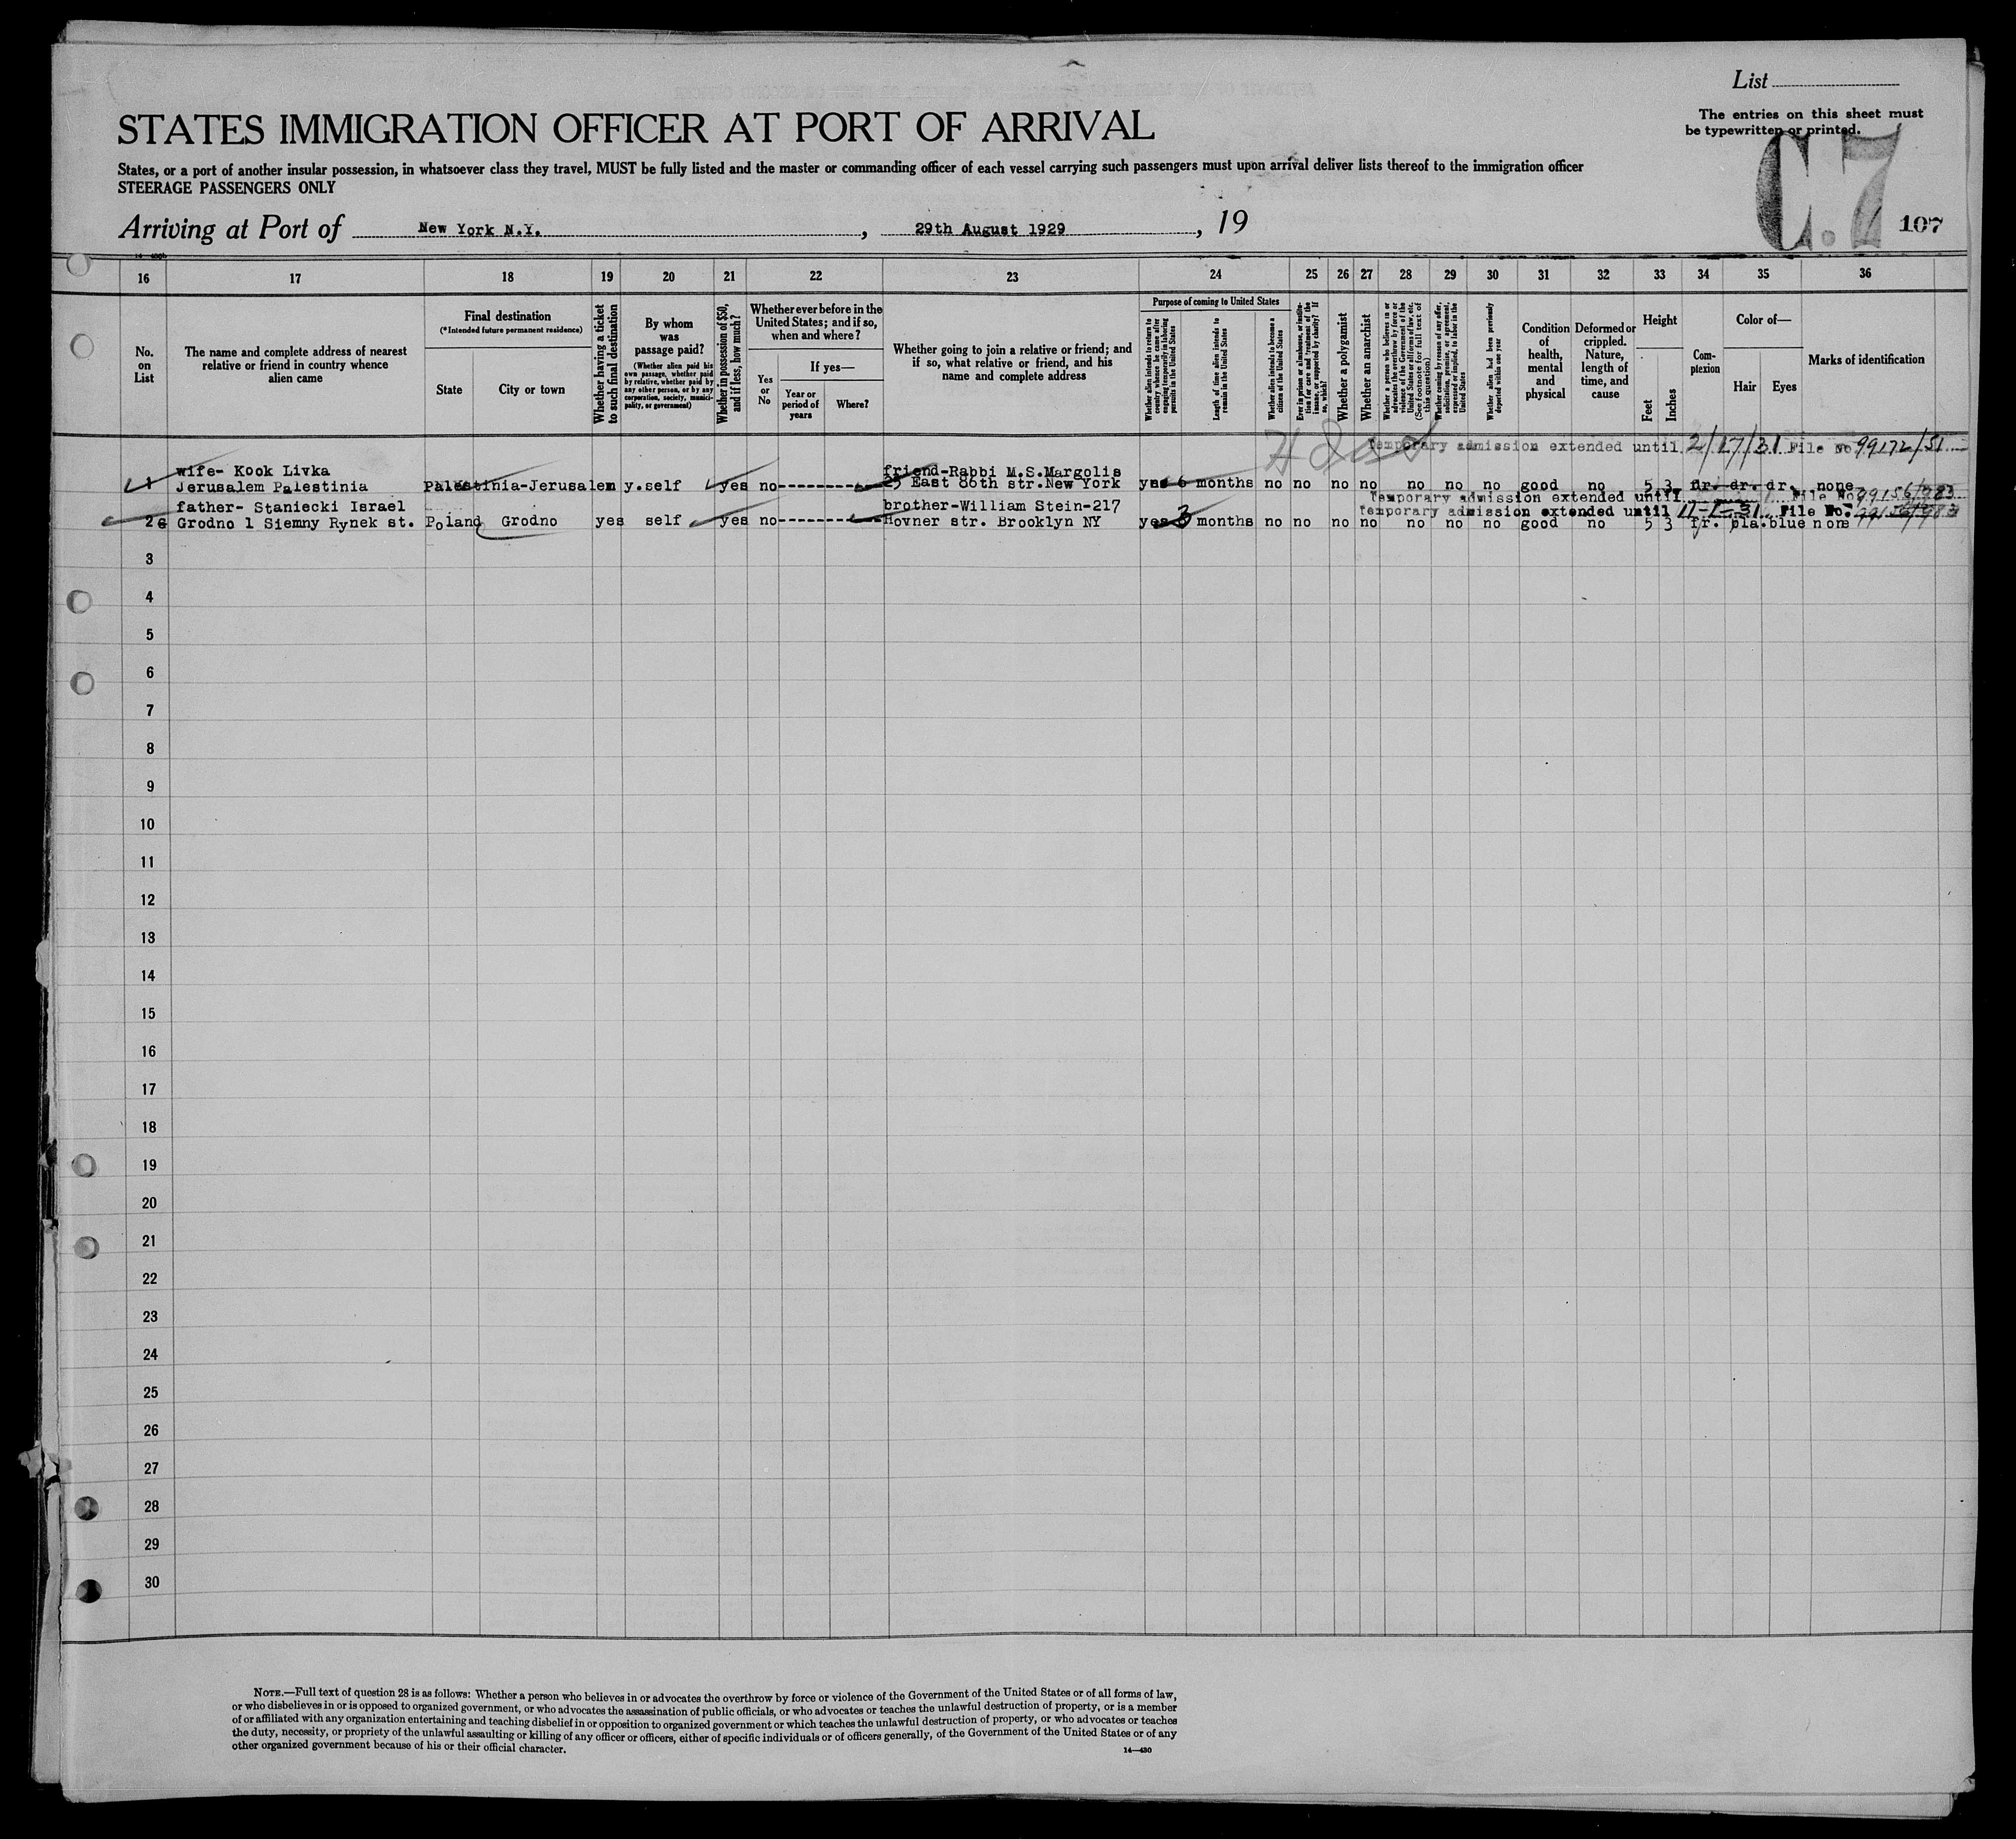 List
The entries on this sheet must
be typewritten or printed.
C.7
107
STATES IMMIGRATION OFFICER AT PORT OF ARRIVAL
States, or a port of another insular possession, in whatsoever class they travel, MUST be fully listed and the master or commanding officer of each vessel carrying such passengers must upon arrival deliver lists thereof to the immigration officer
STEERAGE PASSENGERS ONLY
Arriving at Port of New York N.Y. , 29th August 1929 , 19
16 17 18 19 20 21 22 23 24 25 26 27 28 29 30 31 32 33 34 35 36
No. on List
The name and complete address of nearest
relative or friend in country whence
alien came
Final destination
(*Intended future permanent residence)
State
City or town
Whether having a ticket
to such final destination
By whom
was
passage paid?
(Whether alien paid his
own passage, whether paid
by relative, whether paid by
any other person, or by any
corporation, society, munici-
pality, or government)
Whether in possession of $50,
and if less, how much?
Whether ever before in the
United States; and if so,
when and where?
If yes—
Yes
or
No
Year or
period of
years
Where?
Whether going to join a relative or friend; and
if so, what relative or friend, and his
name and complete address
Purpose of coming to United States
Whether alien intends to return to
country whence he came after
engaging temporarily in laboring
pursuits in the United States
Length of time alien intends to
remain in the United States
Whether alien intends to become a
citizen of the United States
Ever in prison or almshouse, or institu-
tion for care and treatment of the
insane, or supported by charity? If
so, which?
Whether a polygamist
Whether an anarchist
Whether a person who believes in or
advocates the overthrow by force or
violence of the Government of the
United States or all forms of law, etc.
(See footnote for full text of
this question)
Whether coming by reason of any offer,
solicitation, promise, or agreement,
expressed or implied, to labor in the
United States
Whether alien had been previously
deported within one year
Condition
of
health,
mental
and
physical
Deformed or
crippled.
Nature,
length of
time, and
cause
Height
Feet
Inches
Com-
plexion
Color of—
Hair
Eyes
Marks of identification
Temporary admission extended until 2/17/31 File No 99172/51
wife- Kook Livka friend-Rabbi M.S.Margolis
1 Jerusalem Palestinia Palestinia-Jerusalem y. self yes no 25 East 86th str.New York yes 6 months no no no no no no no good no 5 3 dr. dr. dr. none
Temporary admission extended until File No. 99156/983
father- Staniecki Israel brother-William Stein-217 Temporary admission extended until 11-1-31 File No. 99156/983
2 Grodno 1 Siemny Rynek st. Poland Grodno yes self yes no Hovner str. Brooklyn NY yes 3 months no no no no no no no good no 5 3 fr. bla. blue none
3
4
5
6
7
8
9
10
11
12
13
14
15
16
17
18
19
20
21
22
23
24
25
26
27
28
29
30
NOTE.—Full text of question 28 is as follows: Whether a person who believes in or advocates the overthrow by force or violence of the Government of the United States or of all forms of law,
or who disbelieves in or is opposed to organized government, or who advocates the assassination of public officials, or who advocates or teaches the unlawful destruction of property, or is a member
of or affiliated with any organization entertaining and teaching disbelief in or opposition to organized government or which teaches the unlawful destruction of property, or who advocates or teaches
the duty, necessity, or propriety of the unlawful assaulting or killing of any officer or officers, either of specific individuals or of officers generally, of the Government of the United States or of any
other organized government because of his or their official character.
14—430